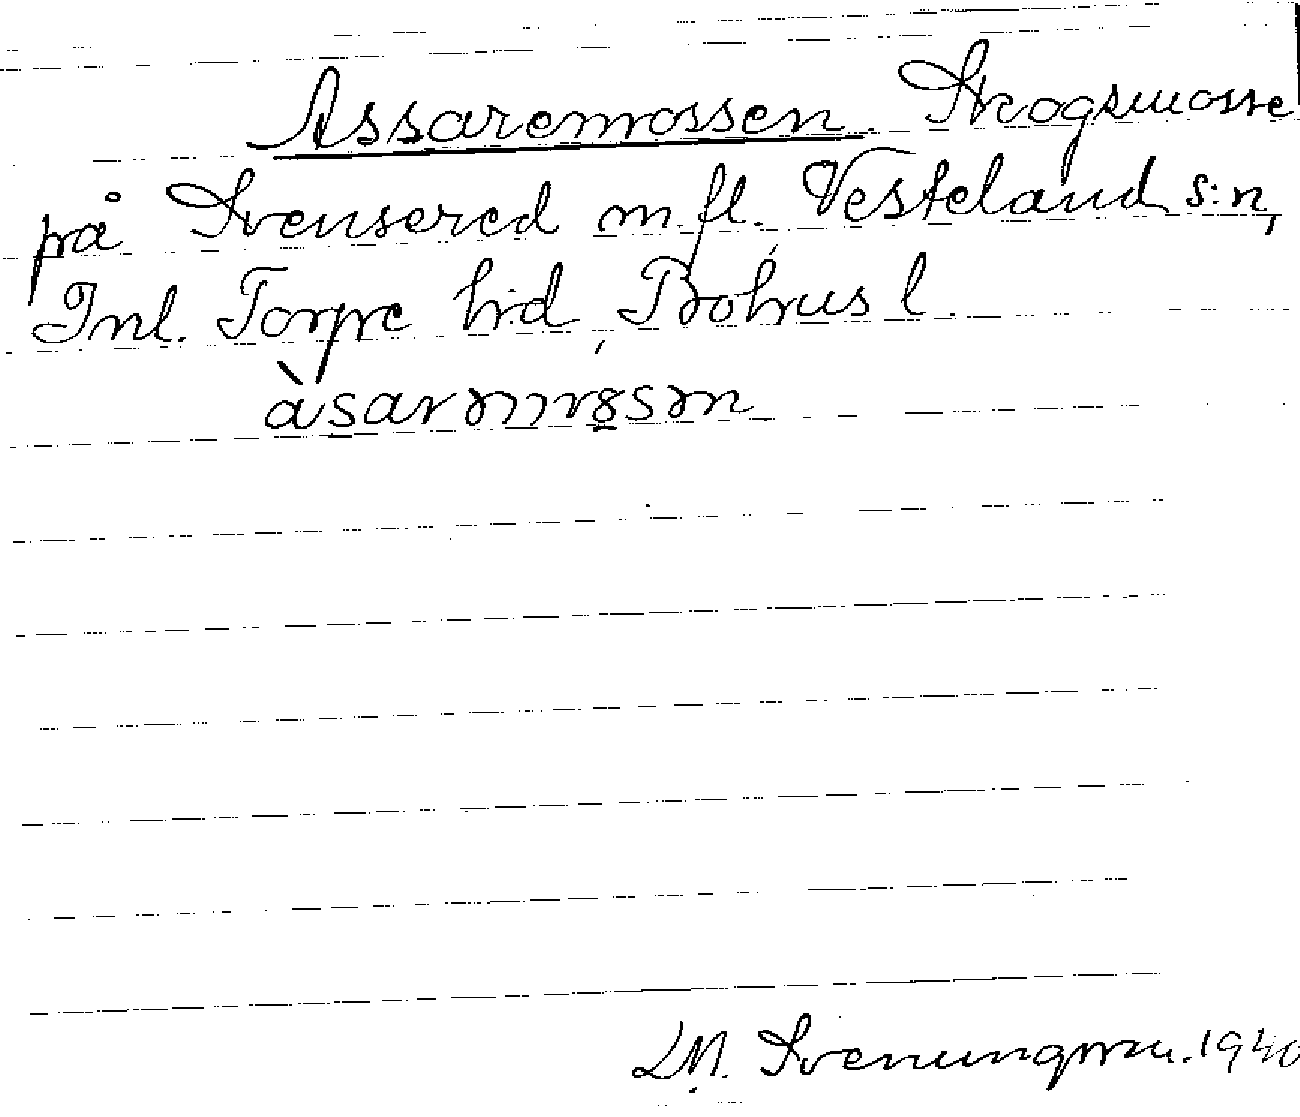 Assaremossen. Skogsmosse
på Svensered m.fl. Vesteland s:n,
Inl. Torpe hd, Bohus l.
àsarəmɤsən
LM. Svenungsson. 1940